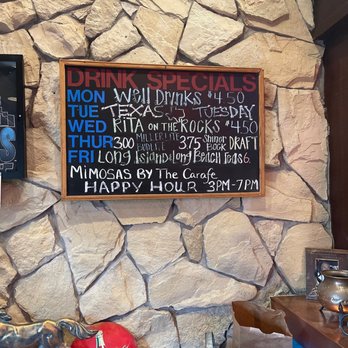 DRINK SPECIALS
MON Well Drinks $4.50
TUE TEXAS TUESDAY
WED RITA ON THE ROCKS $4.50
THUR 300 MILLER LITE BUD LITE 375 SHINER BOCK DRAFT
FRI Long Island & Long Beach Teas 6.
MIMOSAS BY The Carafe
HAPPY HOUR 3PM-7PM